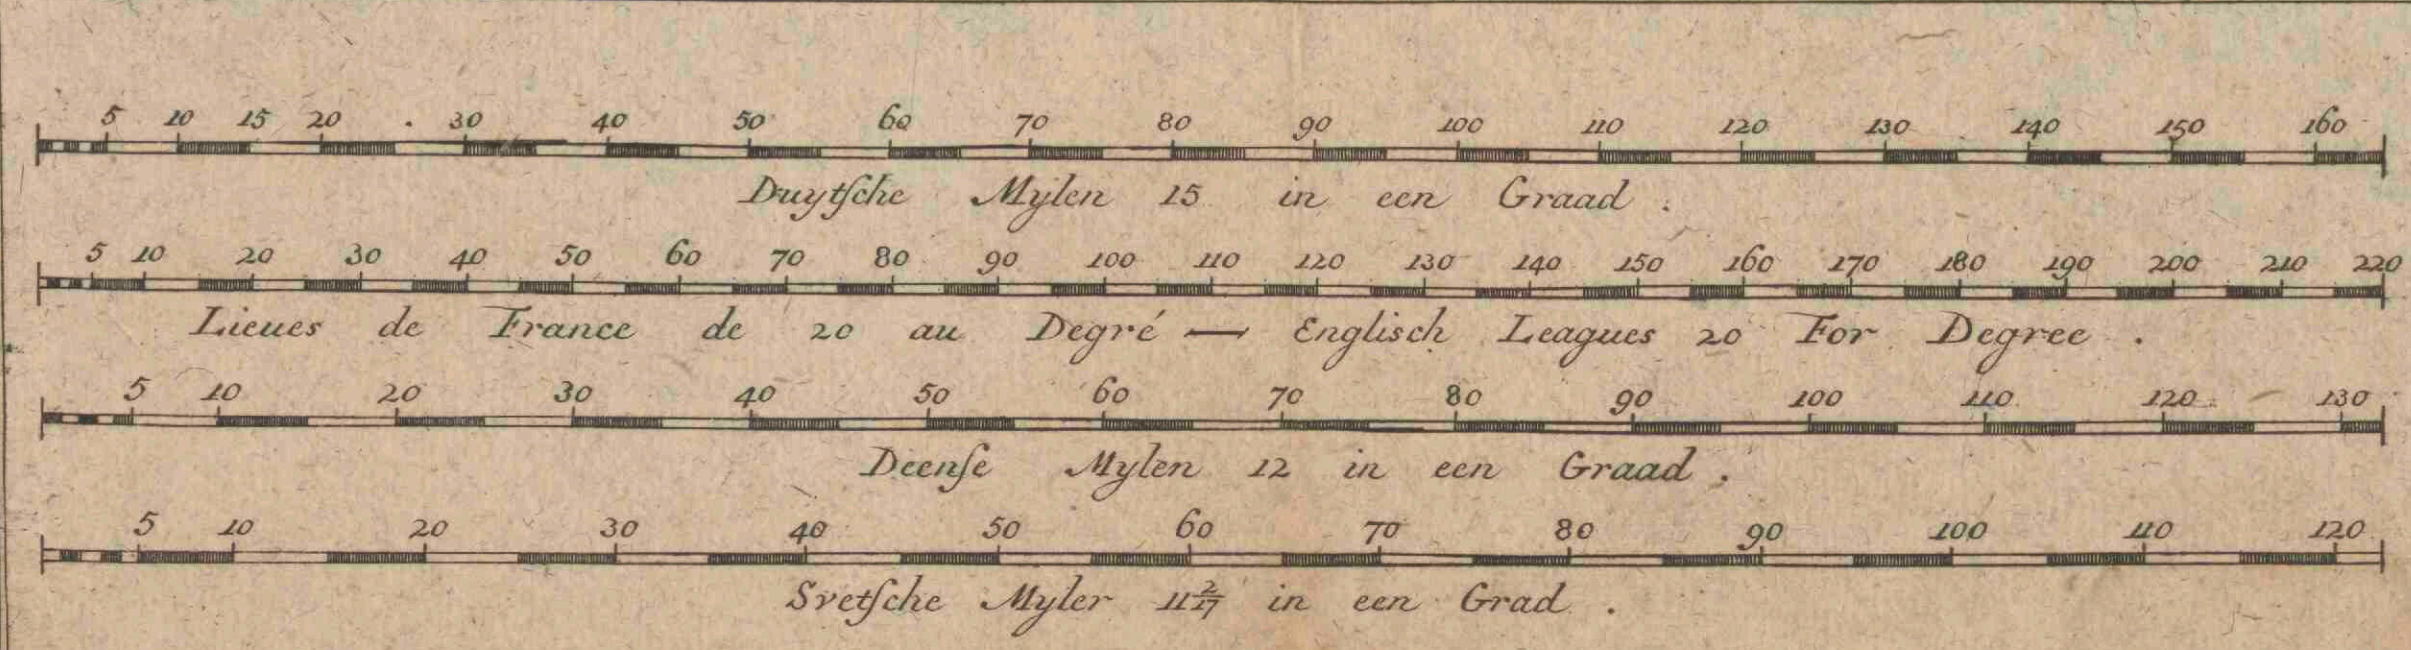 5 10 15 20 30 40 50 60 70 80 90 100 110 120 130 140 150 160
Duytſche Mylen 15 in een Graad.
5 10 20 30 40 50 60 70 80 90 100 110 120 130 140 150 160 170 180 190 200 210 220
Lieues de France de 20 au Degré — Englisch Leagues 20 For Degree.
5 10 20 30 40 50 60 70 80 90 100 110 120 130
Deenſe Mylen 12 in een Graad.
5 10 20 30 40 50 60 70 80 90 100 110 120
Svetſche Myler 11 2/17 in een Grad.